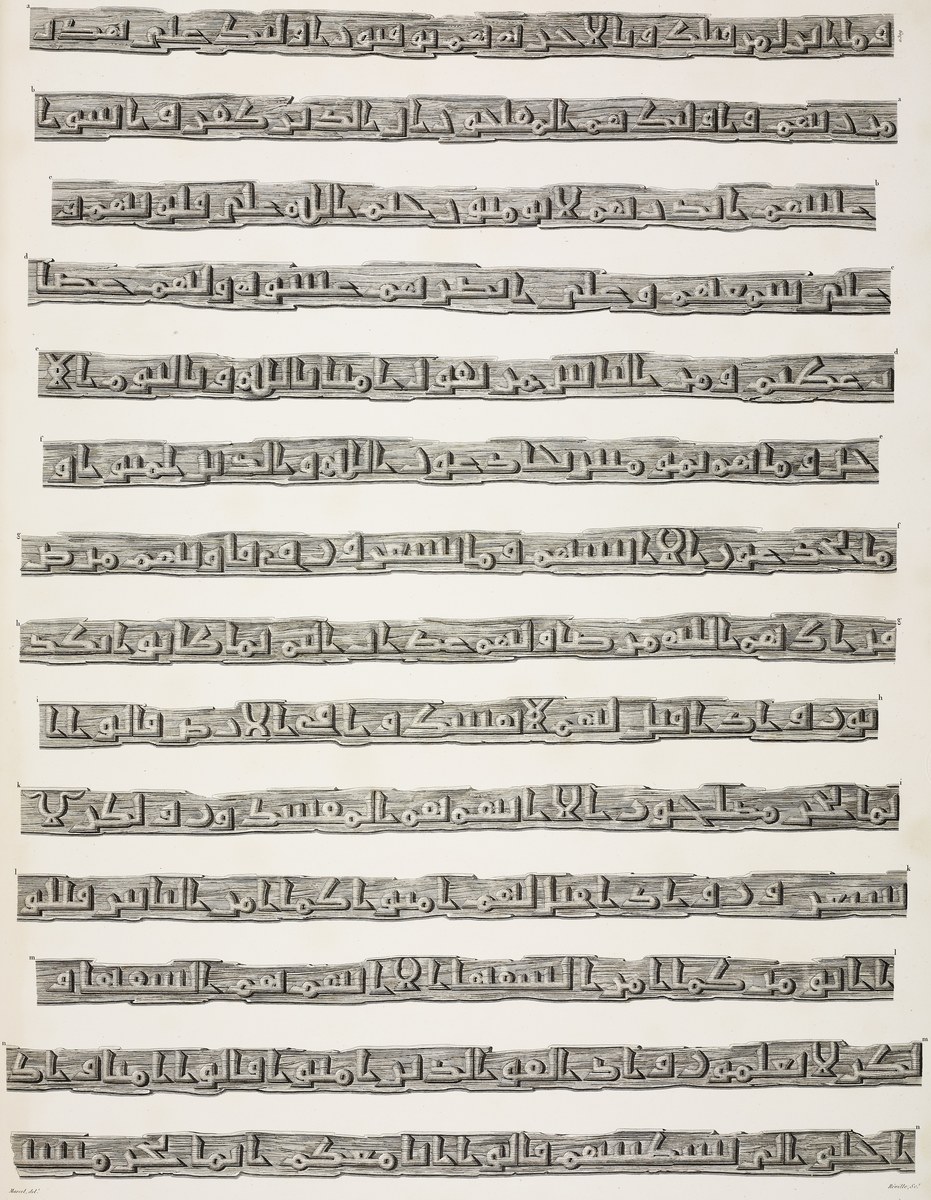 وما انزل من قبلك وبالاخره هم يوقنون اولئك على هدى a
a من ربهم واولئك هم المفلحون ان الذين كفروا سوا b
b عليهم انذرتهم لا يومنون ختم الله على قلوبهم و c
c على سمعهم وعلى ابصرهم غشوه ولهم عذا d
d ب عظيم ومن الناس من يقول امنا بالله وباليوم الا e
e خر وما هم بمومنين يخدعون الله والذين امنوا و f
f ما يخدعون الا انفسهم وما يشعرون في قلوبهم مرض g
g فزادهم الله مرضا ولهم عذاب اليم بما كانوا يكذ h
h بون واذا قيل لهم لا تفسدوا في الارض قالوا ا i
i نما نحن مصلحون الا انهم هم المفسدون ولكن لا k
k يشعرون واذا قيل لهم امنوا كما امن الناس قالو l
l ا انومن كما امن السفها الا انهم هم السفها و m
m لكن لا يعلمون واذا لقوا الذين امنوا قالوا امنا واذ n
n ا خلوا الى شيطينهم قالوا انا معكم انما نحن مستـ
Marcel, del.t
Réville, Sc.t